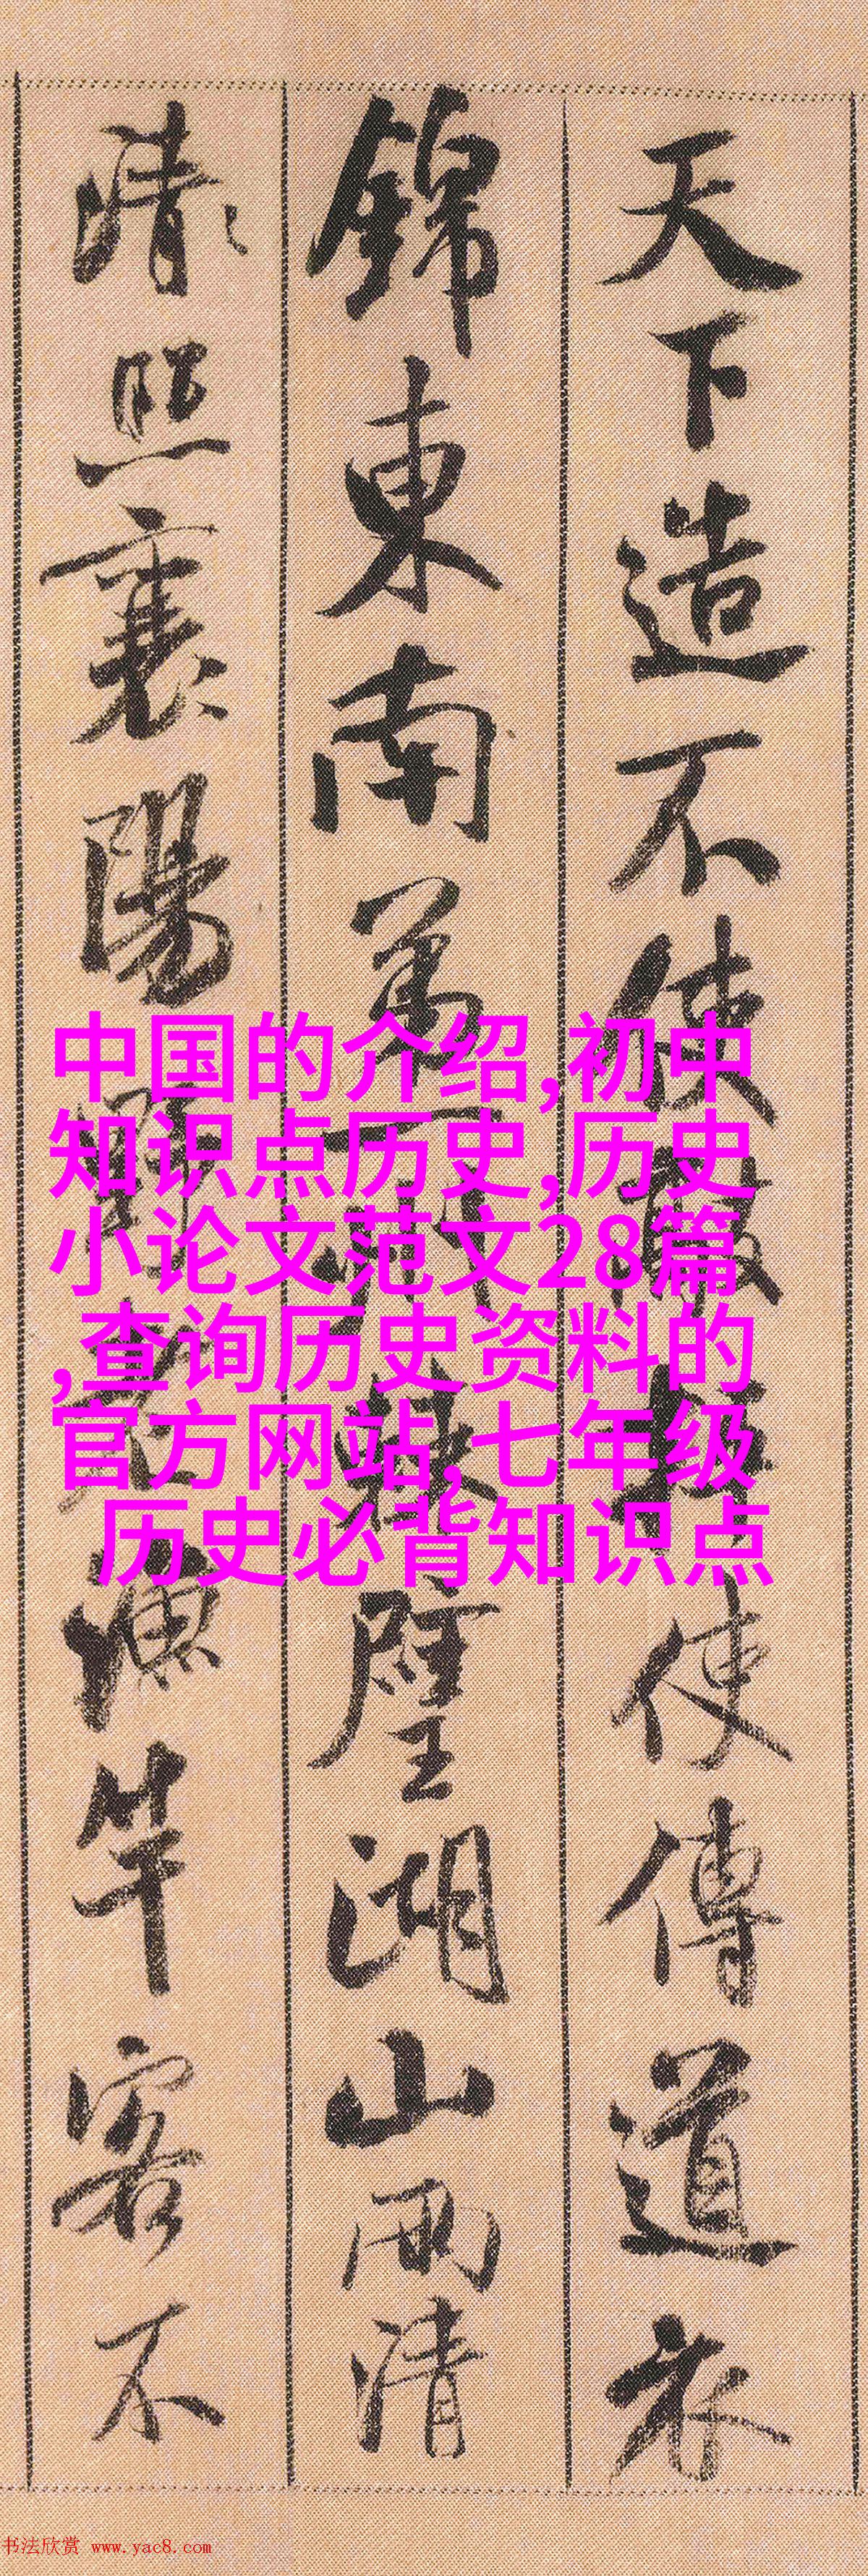 天下造不使敲枰使傳道衣
錦東南第一州棘璧湖山兩清
清照襄陽野老漁竿客不
中国的介绍,初中
知识点历史,历史
小论文范文28篇
,查询历史资料的
官方网站,七年级
历史必背知识点
书法欣赏 www.yac8.com